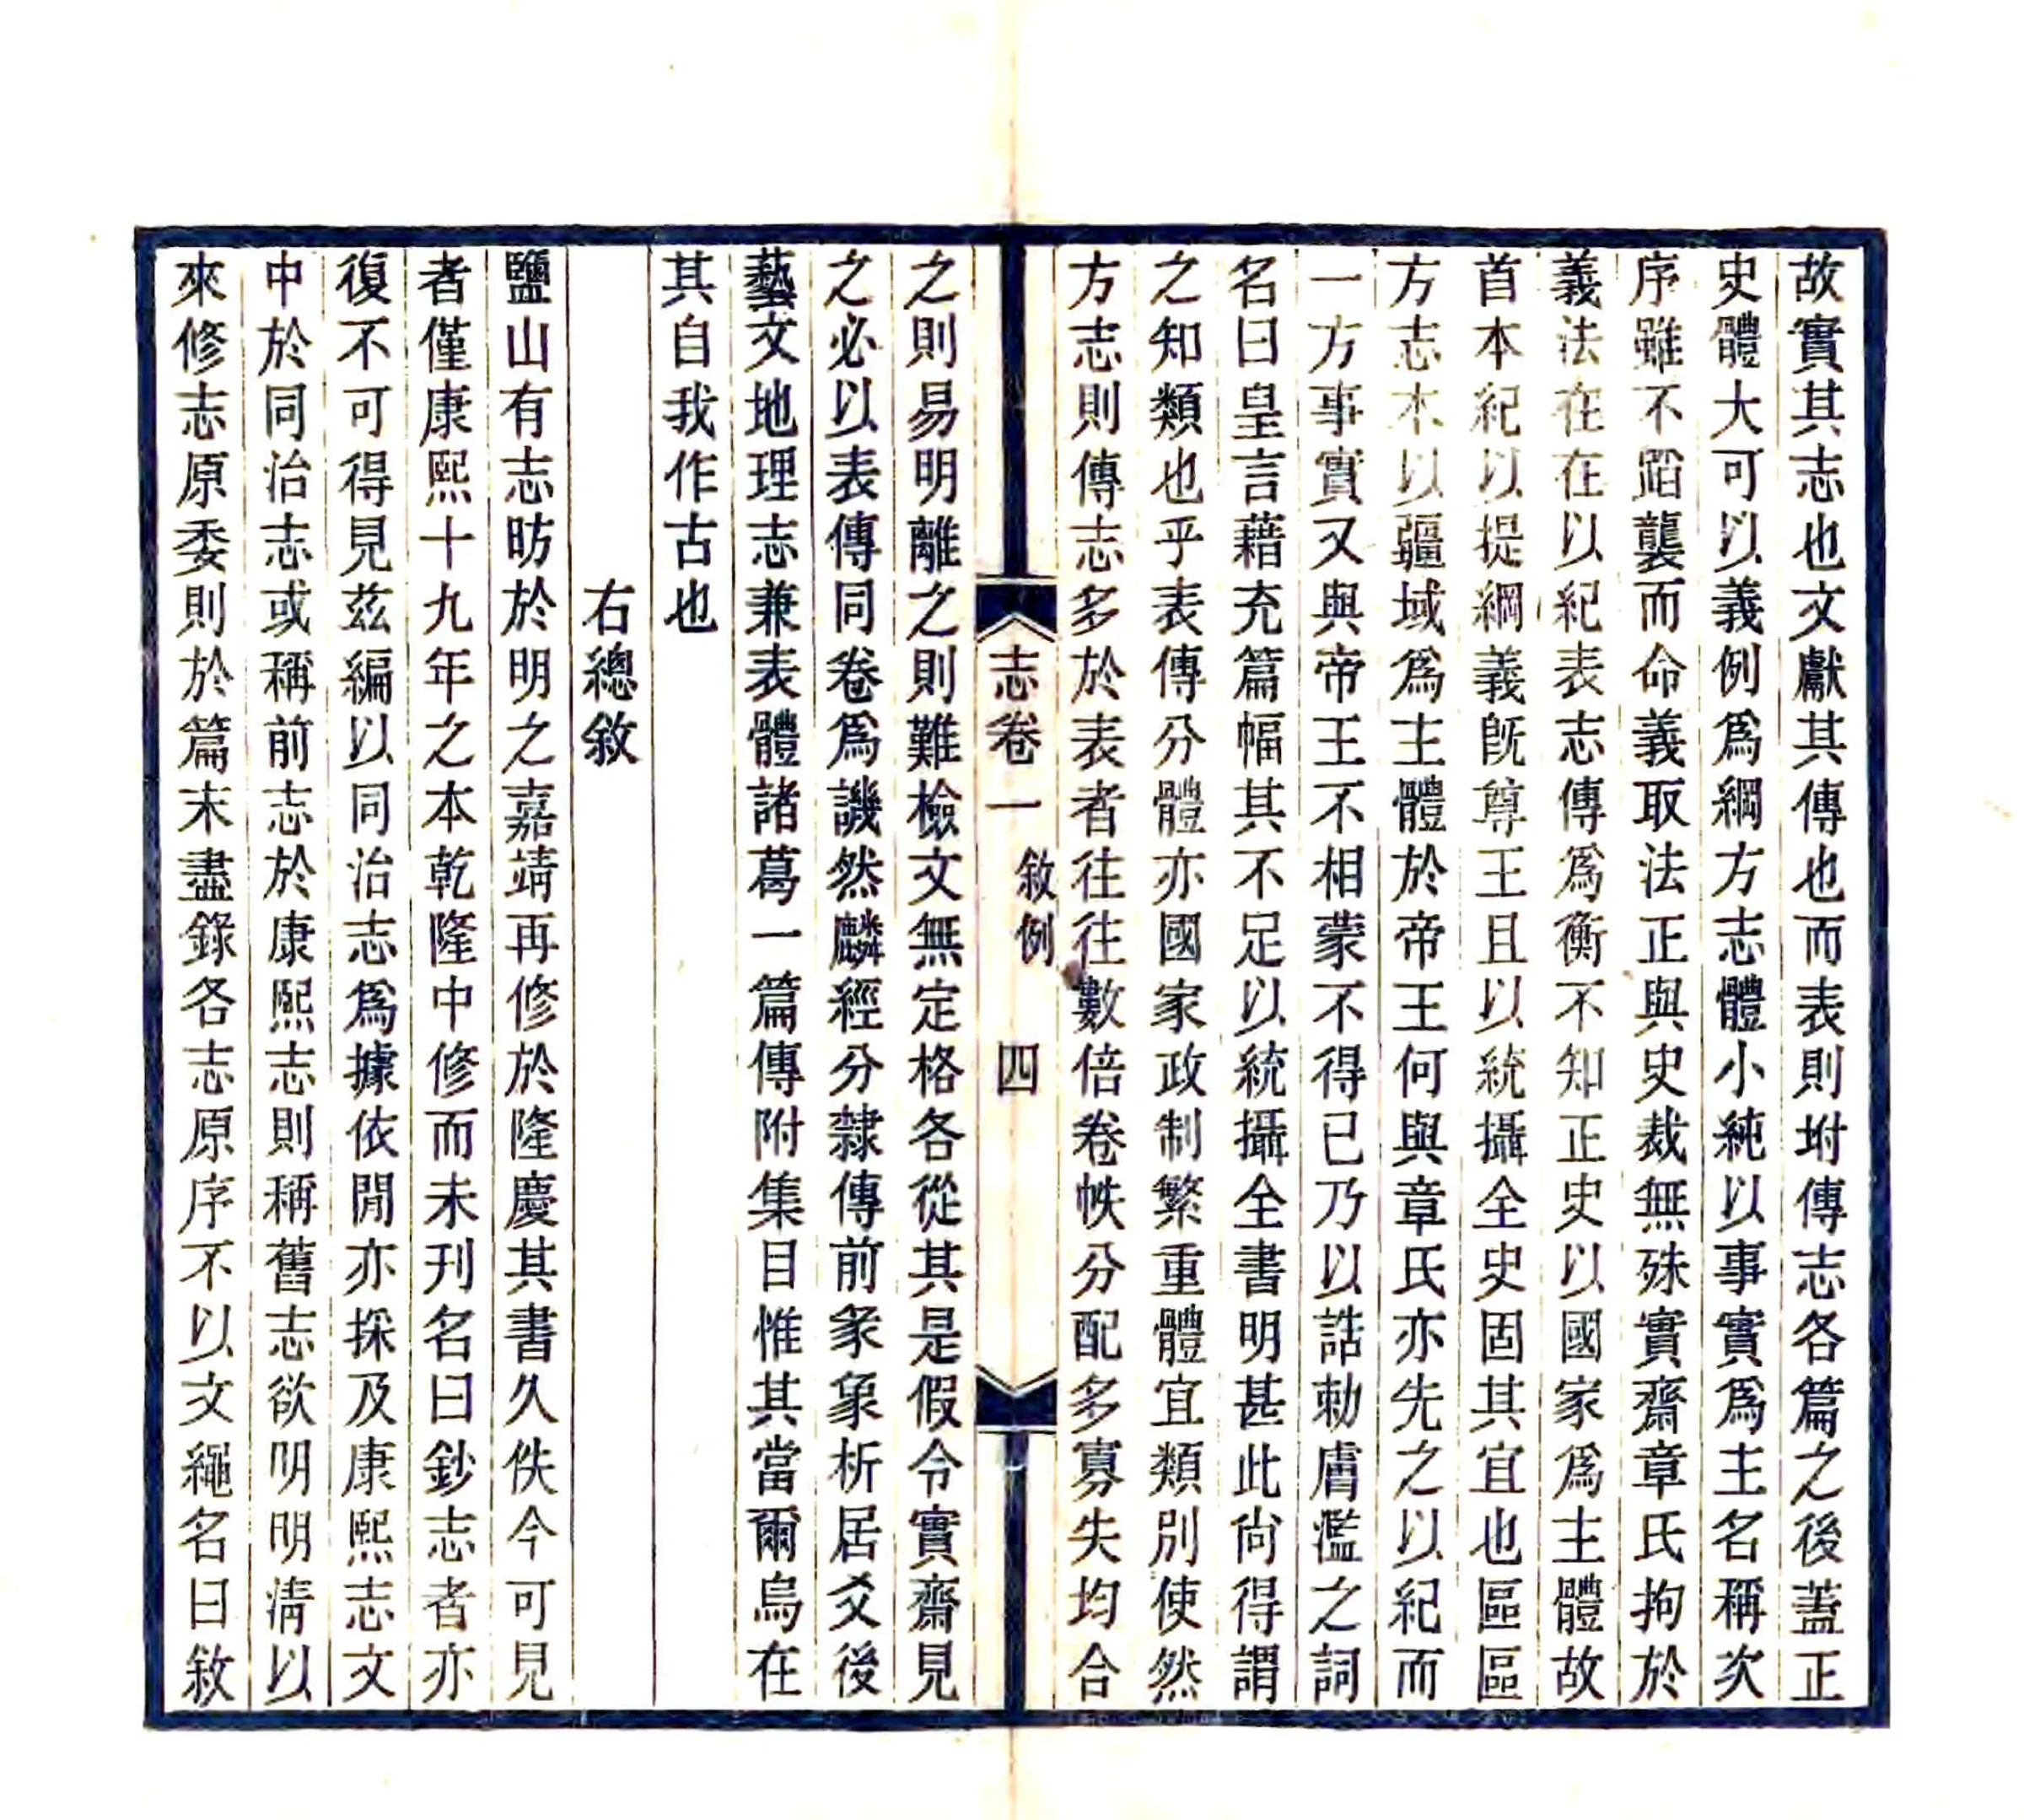 故實其志也文獻其傳也而表則坿傳志各篇之後蓋正
史體大可以義例爲綱方志體小純以事實爲主名稱次
序雖不蹈襲而命義取法正與史裁無殊實齋章氏拘於
義法在在以紀表志傳爲衡不知正史以國家爲主體故
首本紀以提綱義旣尊王且以統攝全史固其宜也區區
方志本以疆域爲主體於帝王何與章氏亦先之以紀而
一方事實又與帝王不相蒙不得已乃以誥勅膚濫之詞
名曰皇言藉充篇幅其不足以統攝全書明甚此尙得謂
之知類也乎表傳分體亦國家政制繁重體宜類別使然
方志則傳志多於表者往往數倍卷帙分配多寡失均合
志卷一 敘例 四
之則易明離之則難檢文無定格各從其是假令實齋見
之必以表傳同卷爲譏然麟經分隸傳前彖象析居爻後
藝文地理志兼表體諸葛一篇傳附集目惟其當爾烏在
其自我作古也
右總敘
鹽山有志昉於明之嘉靖再修於隆慶其書久佚今可見
者僅康熙十九年之本乾隆中修而未刊名曰鈔志者亦
復不可得見茲編以同治志爲據依閒亦採及康熙志文
中於同治志或稱前志於康熙志則稱舊志欲明明淸以
來修志原委則於篇末盡錄各志原序不以文繩名曰敘